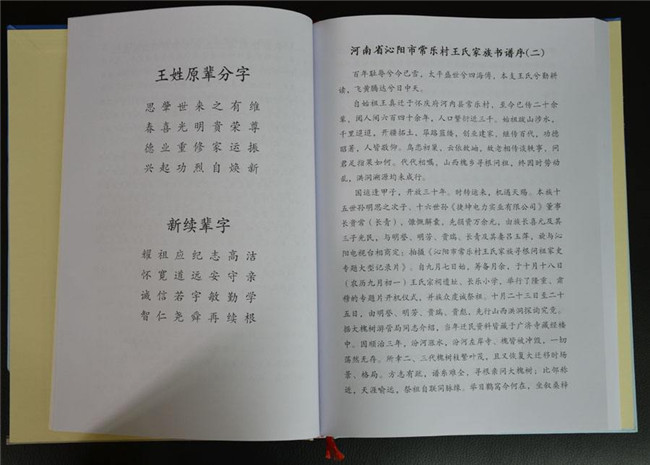 王姓原辈分字
思肇世来之有维
春喜光明贵荣尊
德业重修家运振
兴起功烈自焕新
新续辈字
耀祖应纪志高洁
怀宽道远安守亲
诚信若宇敏勤学
智仁尧舜再续根
河南省沁阳市常乐村王氏家族书谱序(二)
百年耻辱兮今已雪，太平盛世兮四海傅，本支王氏兮勤耕
读，飞黄腾达兮日中天。
自始祖王真迁于怀庆府河内县常乐村，至今已传二十余
家，阅人间六百四十余年，人口繁衍近三千。始祖跋山涉水，
千里迢迢，开疆拓土，筚路蓝缕，创业建家，继传百代，功德
昭著，人皆敬仰。乌思初巢，云依故岫，故老相传谈轶事，问
君足指果如何。代代相嘱，山西槐乡寻根问祖，终因对势动
乱，洪洞溯源均未成行。
国运逢甲子，开放三十年。时转运来，机遇天赐。本族十
五世孙明思之次子、十六世孙《捷坤电力实业有限公司》董事
长贵常（长青），慷慨解囊。先捐资万余元，由族长喜允及其
三子光民，与明登、明芳、贵瑞、长青及其妻吕玉萍，故与沁
阳电视台相商定：拍摄《沁阳市常乐村王氏家族寻根问祖家史
专题大型记录片》。自九月七日始，筹备月余，于十月十八日
（农历九月初一）王氏宗祠遗址，长乐小学，举行了隆重、肃
穆的专题片开机仪式，并族众虔诚祭祖。十月二十三日至二十
五日，由明登、明芳、贵瑞、贵彪，先行山西洪洞探询究竟。
据大槐树游管局同志介绍，当年迁民资料皆藏于广济寺藏经楼
中。因顺治三年，汾河涨水，汾河左岸寺、槐皆被冲毁，一切
荡然无存。所幸二、三代槐树枝繁叶茂，且又恢复大迁移时场
景、格局。方志有疏，谱系难全，寻根亲问大槐树；比邻称
近，天涯喻远，祭祖自联同脉缘。举目鹳窝今何在，坐叙桑梓